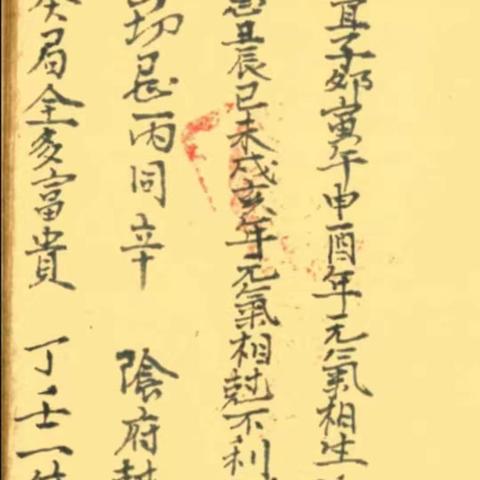 宜子卯寅午申酉年元氣相生
忌丑辰巳未戌亥年元氣相尅不利
切忌丙同辛　陰府
癸局全多富貴　丁壬一